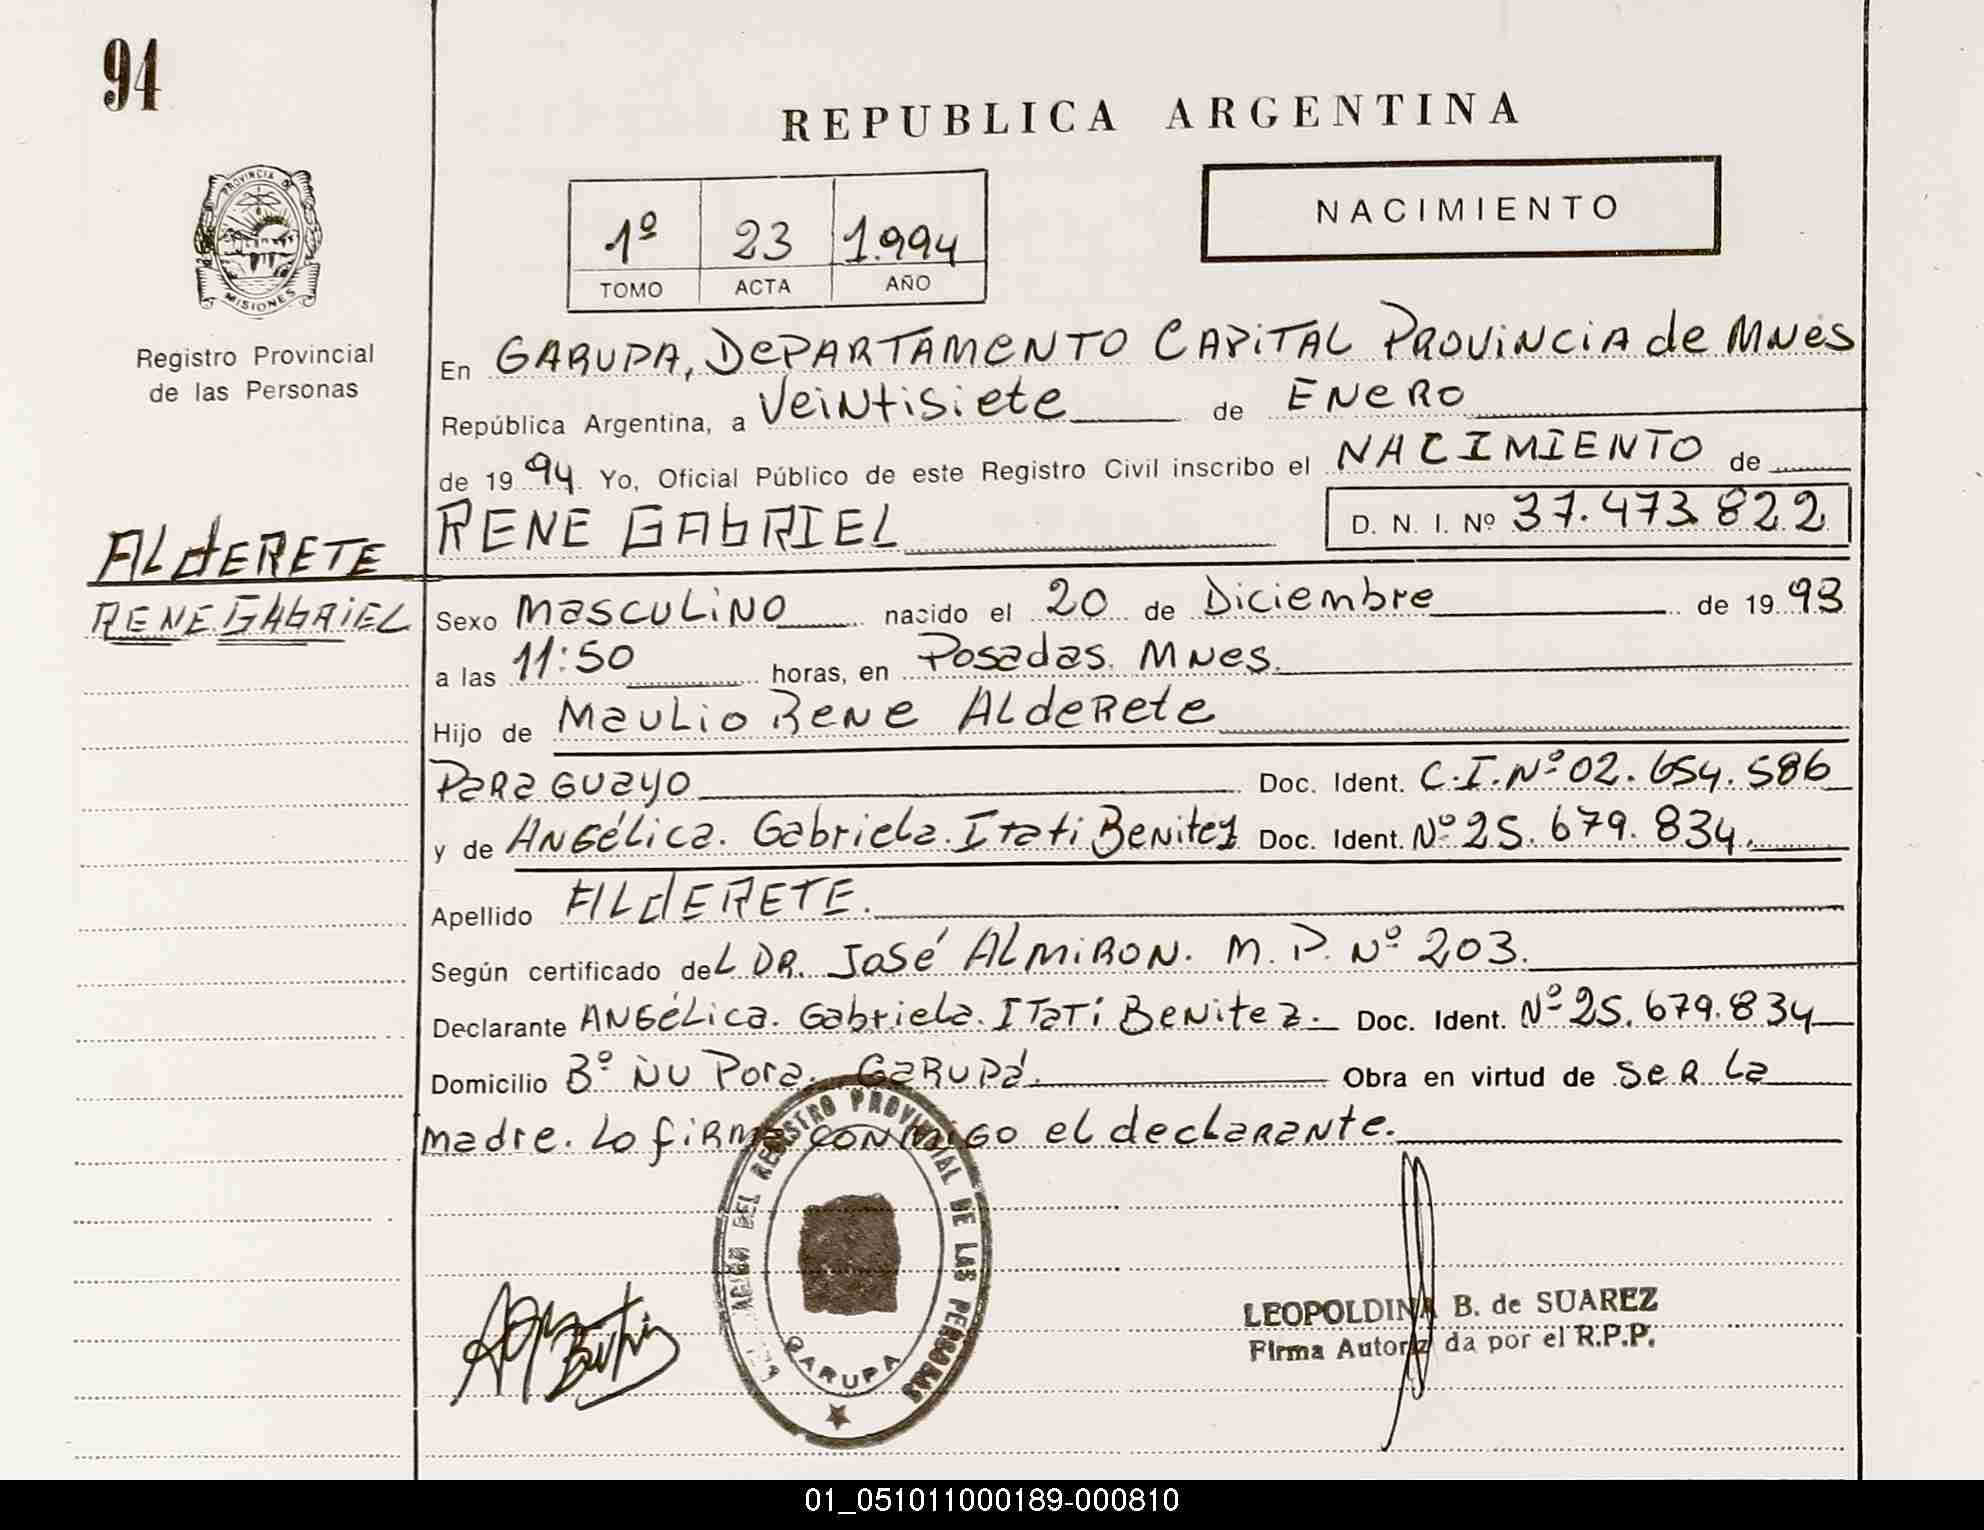 94
REPUBLICA ARGENTINA
PROVINCIA DE
MISIONES
Registro Provincial
de las Personas
1º 23 1.994
TOMO ACTA AÑO
NACIMIENTO
En GARUPA, DEPARTAMENTO CAPITAL PROVINCIA de MNES
República Argentina, a Veintisiete de ENERO
de 1994 Yo, Oficial Público de este Registro Civil inscribo el NACIMIENTO de
RENE GABRIEL D. N. I. Nº 37.473.822
ALDERETE
RENE GABRIEL
Sexo MASCULINO nacido el 20 de Diciembre de 1993
a las 11:50 horas, en Posadas. MNES.
Hijo de MAULIO RENE ALDERETE
PARAGUAYO Doc. Ident. C.I. Nº 02.654.586
y de ANGÉLICA. Gabriela. Itati Benitez Doc. Ident. Nº 25.679.834.
Apellido ALDERETE.
Según certificado del DR. JOSÉ ALMIRON. M. P. Nº 203.
Declarante ANGÉLICA. Gabriela. ITATÍ BENITEZ. Doc. Ident. Nº 25.679.834
Domicilio Bº ÑU Pora. GARUPÁ. Obra en virtud de SER La
madre. Lo firma CONMIGO el declarante.
DEL REGISTRO PROVINCIAL DE LAS PERSONAS
GARUPA
LEOPOLDINA B. de SUAREZ
Firma Autorizada por el R.P.P.
01_051011000189-000810